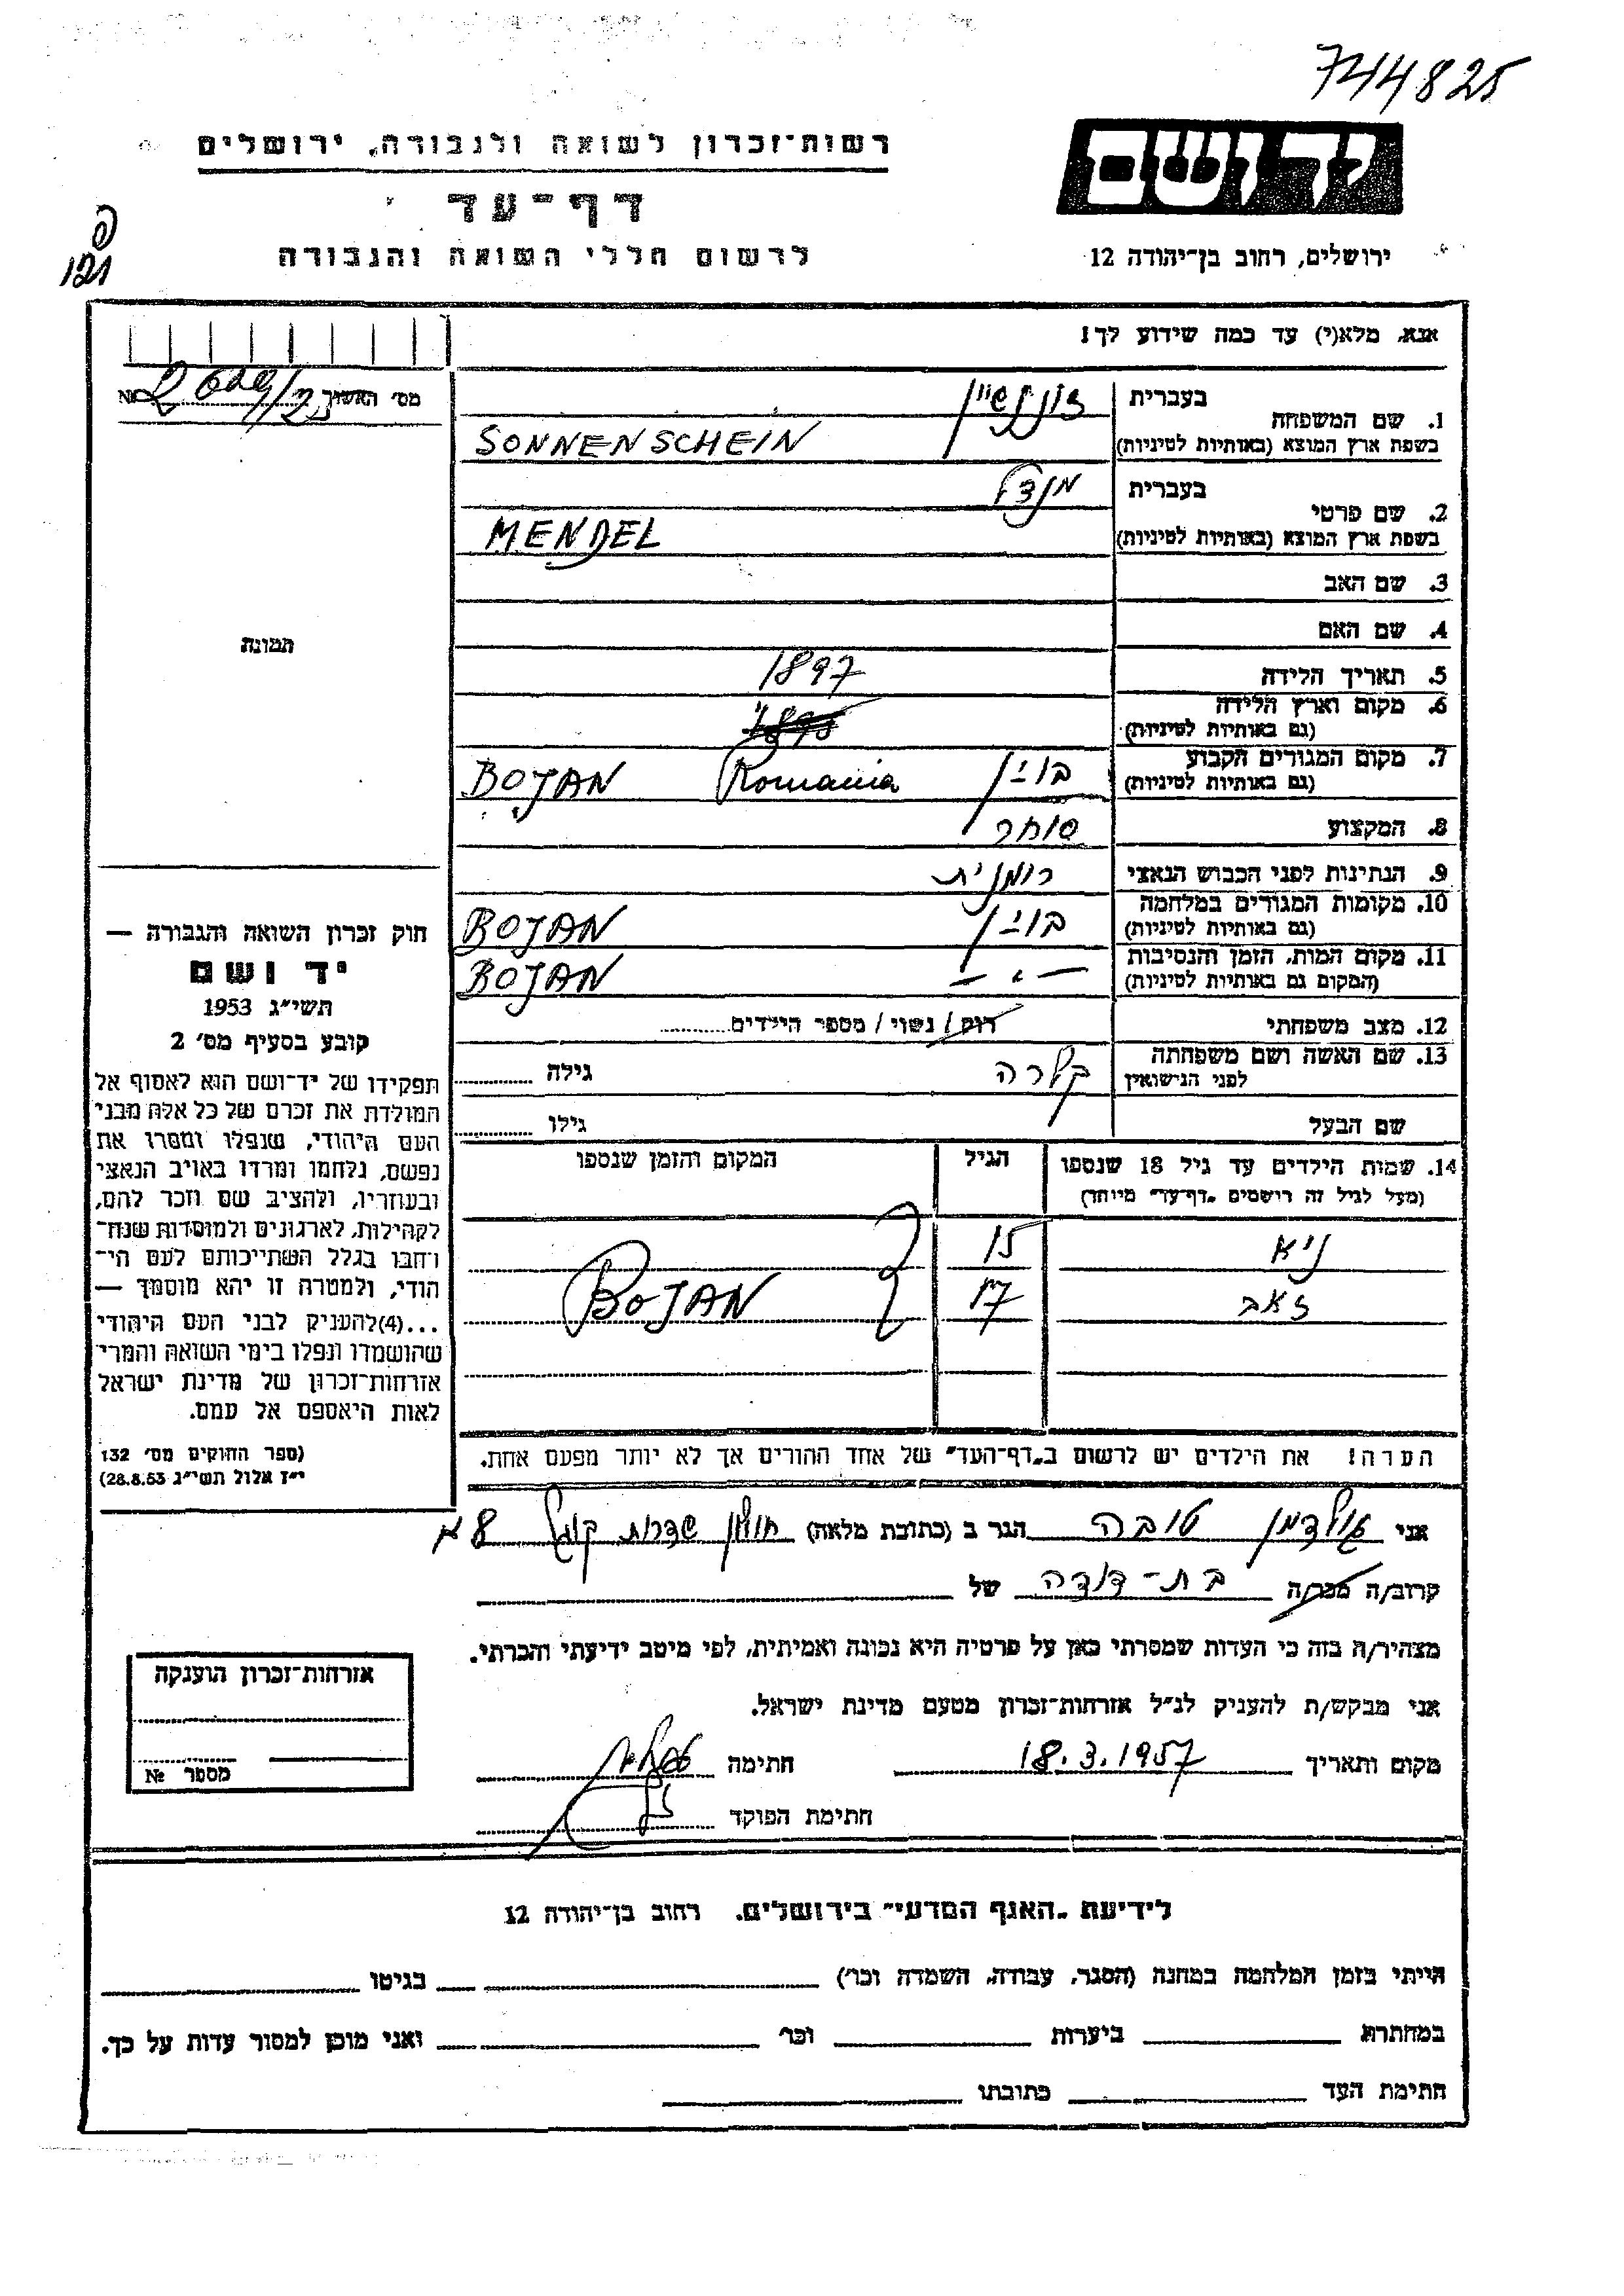 744825
יד ושם
רשות־זכרון לשואה ולגבורה, ירושלים
דף־עד
לרשום חללי השואה והגבורה
ירושלים, רחוב בן־יהודה 12
אנא, מלא(י) עד כמה שידוע לך!
מס׳ האשור № 2609/23
1. שם המשפחה
בעברית זוננשיין
בשפת ארץ המוצא (באותיות לטיניות) SONNENSCHEIN
2. שם פרטי
בעברית מנדל
בשפת ארץ המוצא (באותיות לטיניות) MENDEL
3. שם האב
4. שם האם
5. תאריך הלידה 1897
6. מקום וארץ הלידה
(גם באותיות לטיניות)
7. מקום המגורים הקבוע בויאן Romania BOJAN
(גם באותיות לטיניות)
8. המקצוע סוחר
9. הנתינות לפני הכבוש הנאצי רומנית
10. מקומות המגורים במלחמה בויאן BOJAN
(גם באותיות לטיניות)
11. מקום המות, הזמן והנסיבות — " — BOJAN
(המקום גם באותיות לטיניות)
12. מצב משפחתי רוק / נשוי / מספר הילדים
13. שם האשה ושם משפחתה קלרה גילה
לפני הנישואין
שם הבעל גילו
14. שמות הילדים עד גיל 18 שנספו הגיל המקום והזמן שנספו
(מעל לגיל זה רושמים „דף־עד״ מיוחד)
15
זאב 17 BOJAN
הערה! את הילדים יש לרשום ב„דף־העד״ של אחד ההורים אך לא יותר מפעם אחת.
תמונה
חוק זכרון השואה והגבורה —
יד ושם
תשי״ג 1953
קובע בסעיף מס׳ 2
תפקידו של יד־ושם הוא לאסוף אל
המולדת את זכרם של כל אלה מבני
העם היהודי, שנפלו ומסרו את
נפשם, נלחמו ומרדו באויב הנאצי
ובעוזריו, ולהציב שם וזכר להם,
לקהילות, לארגונים ולמוסדות שנח־
רבו בגלל השתייכותם לעם הי־
הודי, ולמטרה זו יהא מוסמך —
...(4)להעניק לבני העם היהודי
שהושמדו ונפלו בימי השואה והמרי
אזרחות־זכרון של מדינת ישראל
לאות היאספם אל עמם.
(ספר החוקים מס׳ 132
י״ז אלול תשי״ג 28.8.53)
אני גולדמן טובה הגר ב (כתובת מלאה) חולון שדרות קוגל 8
קרוב/ה מכר/ה בת-דודה של
מצהיר/ה בזה כי העדות שמסרתי כאן על פרטיה היא נכונה ואמיתית, לפי מיטב ידיעתי והכרתי.
אני מבקש/ת להעניק לנ״ל אזרחות־זכרון מטעם מדינת ישראל.
מקום ותאריך 18.3.1957 חתימה
חתימת הפוקד
אזרחות־זכרון הוענקה
מספר №
לידיעת „האגף המדעי״ בירושלים. רחוב בן־יהודה 12
הייתי בזמן המלחמה במחנה (הסגר, עבודה, השמדה וכו׳) בגיטו
במחתרת ביערות וכו׳ ואני מוכן למסור עדות על כך.
חתימת העד כתובתו